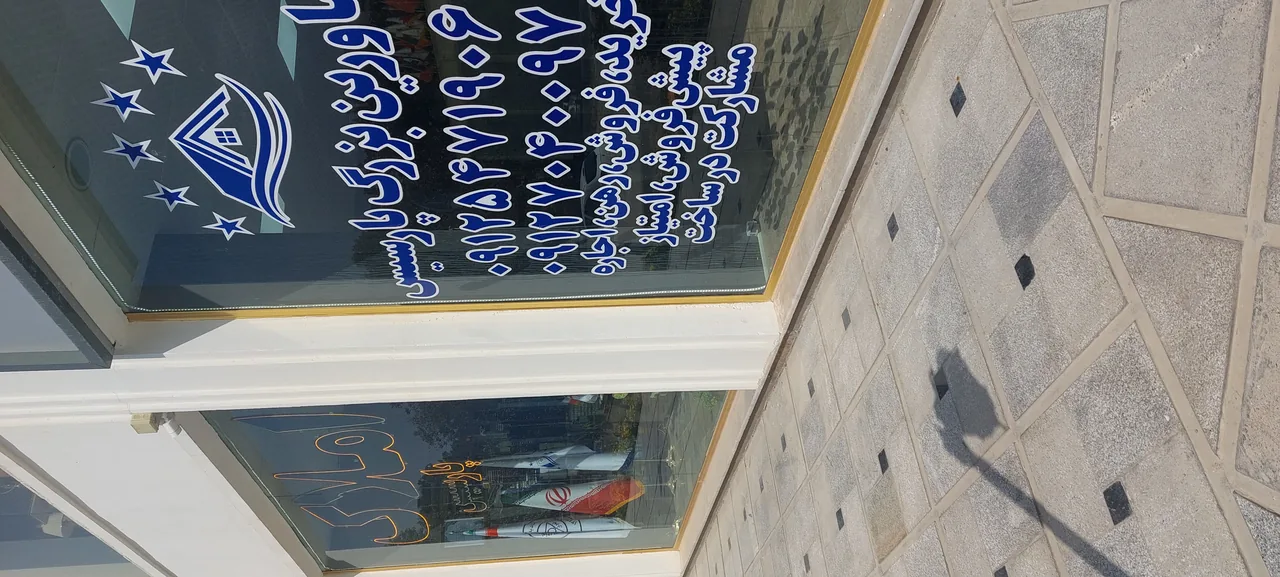 اورین بزرگ پارسیس
۰۹۱۲۵۴۷۱۹۰۶
۰۹۱۲۷۰۴۰۰۹۷
خرید، فروش، رهن، اجاره
پیش فروش، امتیاز
مشارکت در ساخت
املاک